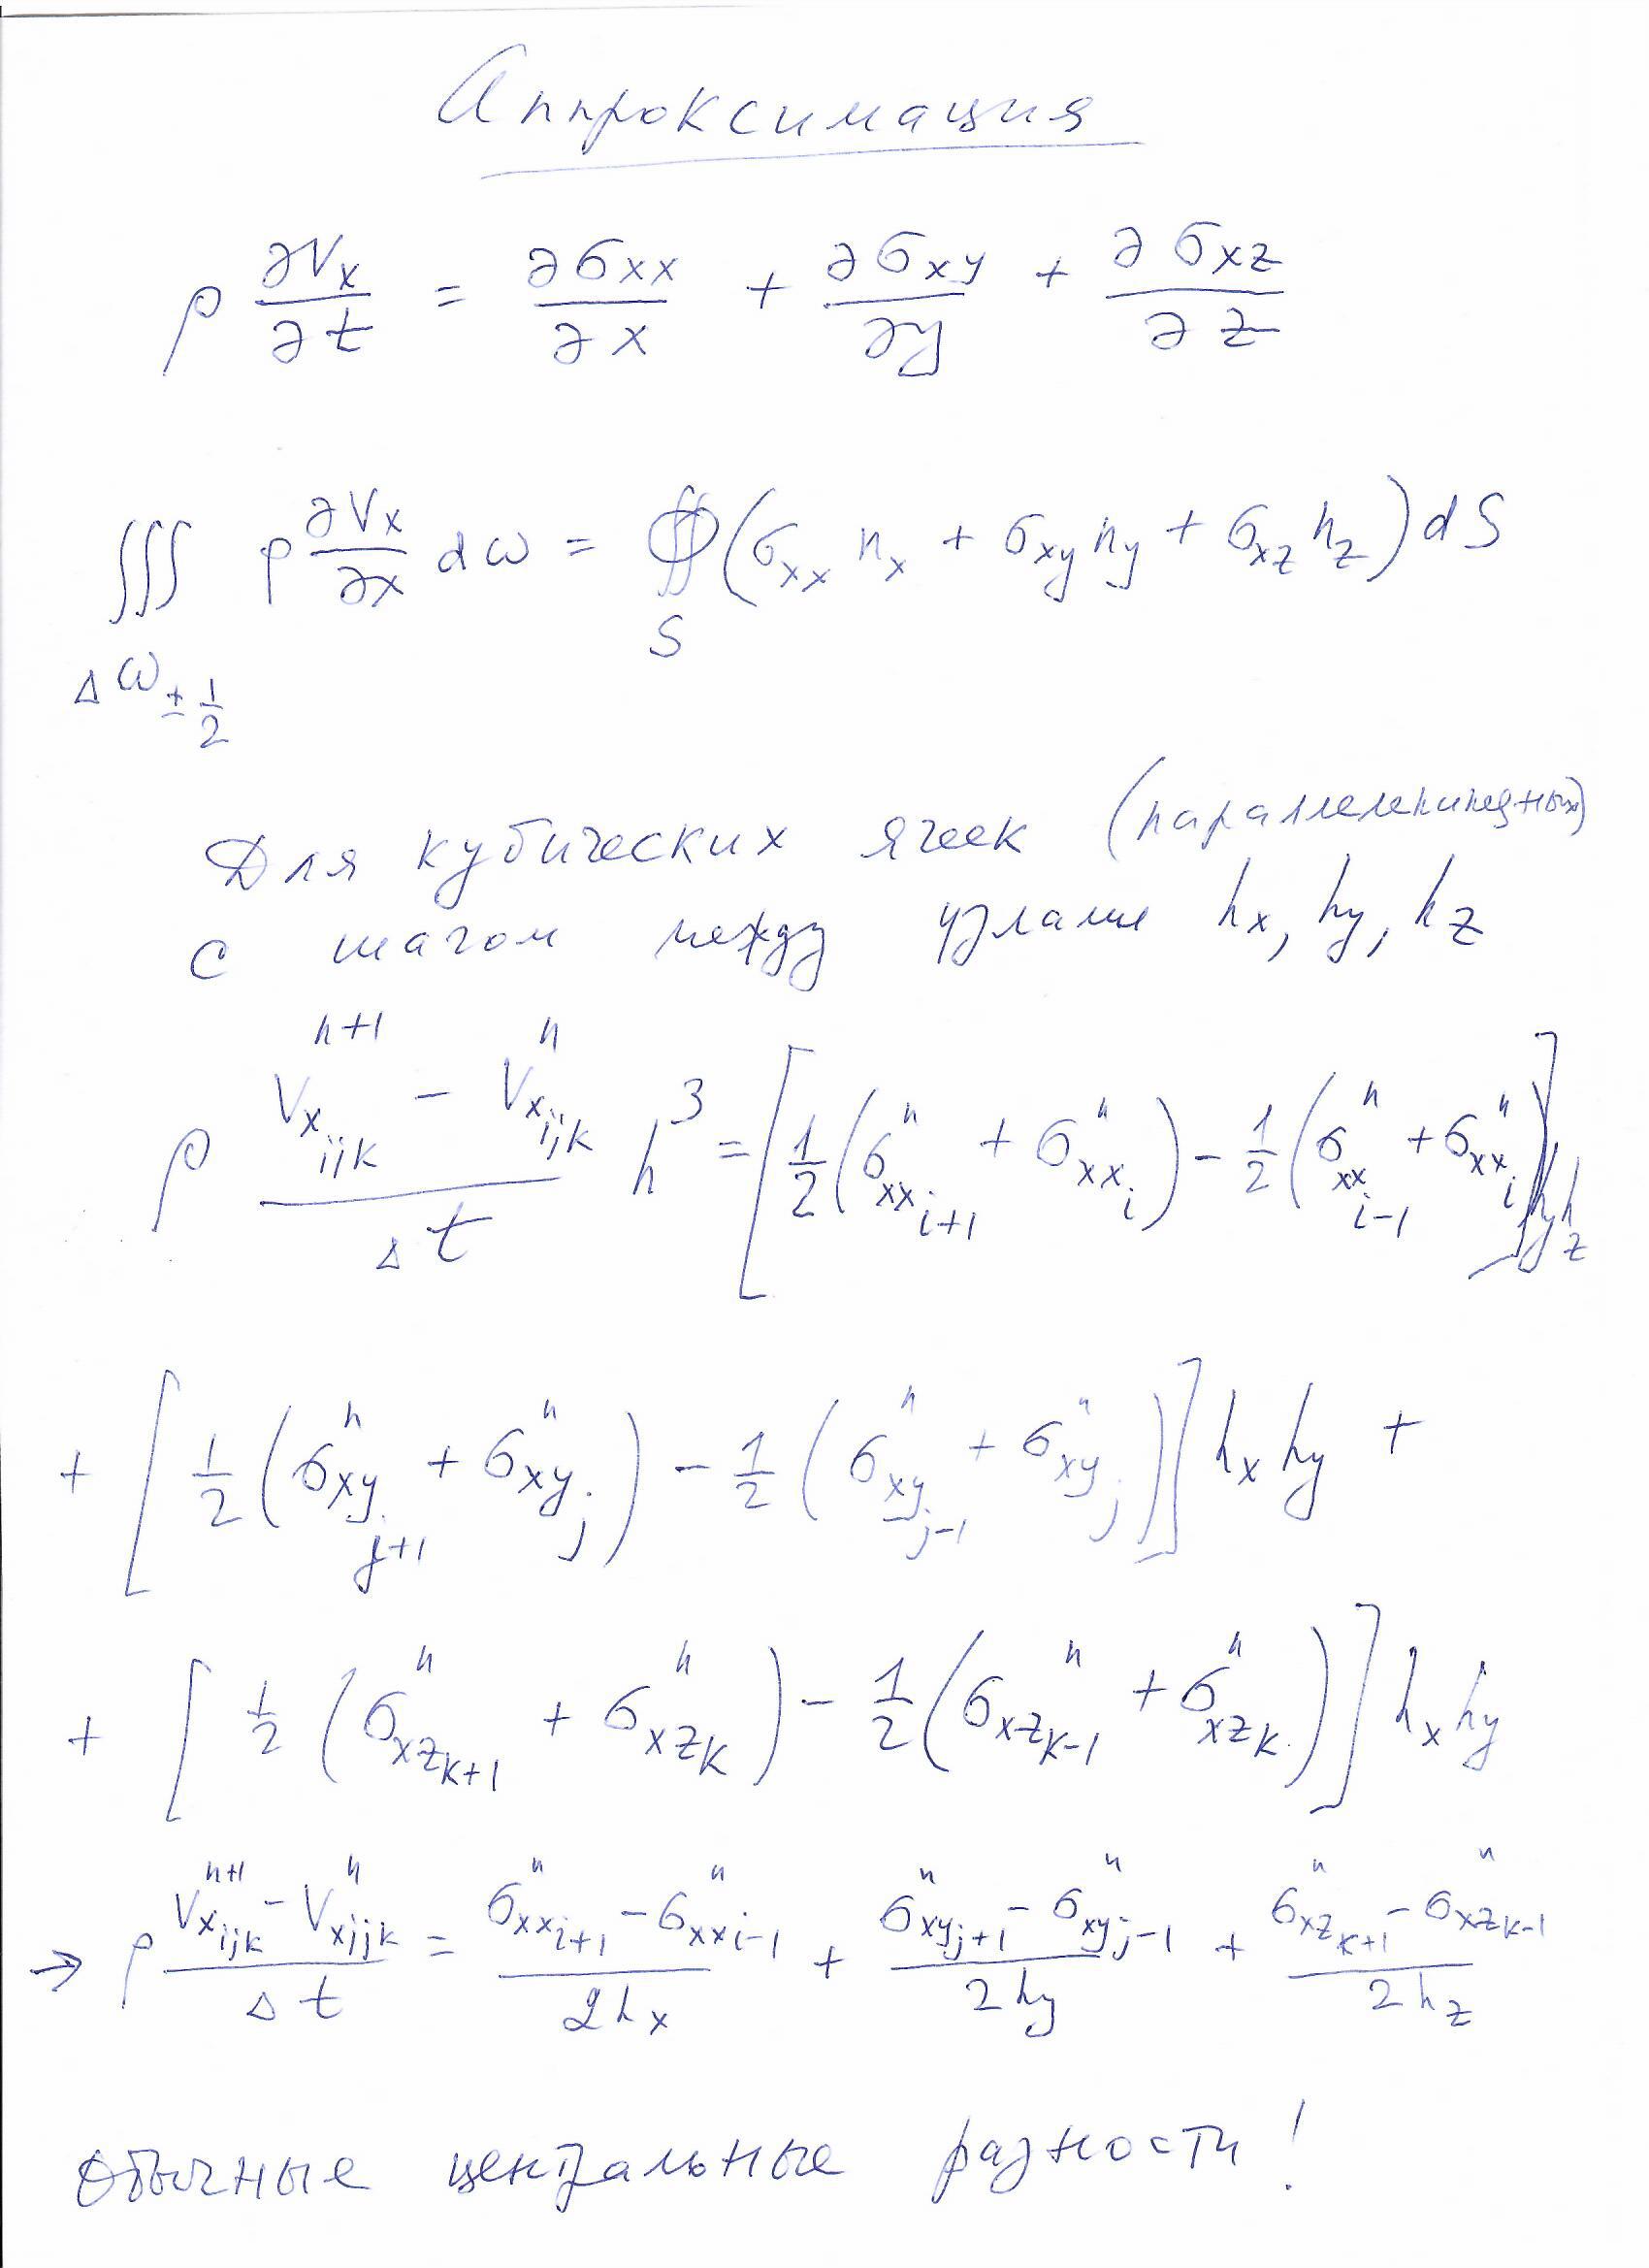 Аппроксимация
ρ ∂Vx/∂t = ∂σxx/∂x + ∂σxy/∂y + ∂σxz/∂z
∭_{Δω±1/2} ρ ∂Vx/∂x dω = ∯_S (σxx nx + σxy ny + σxz nz) dS
Для кубических ячеек (параллелепипедных)
с шагом между узлами hx, hy, hz
ρ (Vx_{ijk}^{n+1} − Vx_{ijk}^{n})/Δt h^3 = [1/2 (σxx_{i+1}^{n} + σxx_{i}^{n}) − 1/2 (σxx_{i-1}^{n} + σxx_{i}^{n})] hy hz
+ [1/2 (σxy_{j+1}^{n} + σxy_{j}^{n}) − 1/2 (σxy_{j-1}^{n} + σxy_{j}^{n})] hx hy +
+ [1/2 (σxz_{k+1}^{n} + σxz_{k}^{n}) − 1/2 (σxz_{k-1}^{n} + σxz_{k}^{n})] hx hy
→ ρ (Vx_{ijk}^{n+1} − Vx_{ijk}^{n})/Δt = (σxx_{i+1}^{n} − σxx_{i-1}^{n})/2hx + (σxy_{j+1}^{n} − σxy_{j-1}^{n})/2hy + (σxz_{k+1}^{n} − σxz_{k-1}^{n})/2hz
Обычные центральные разности!